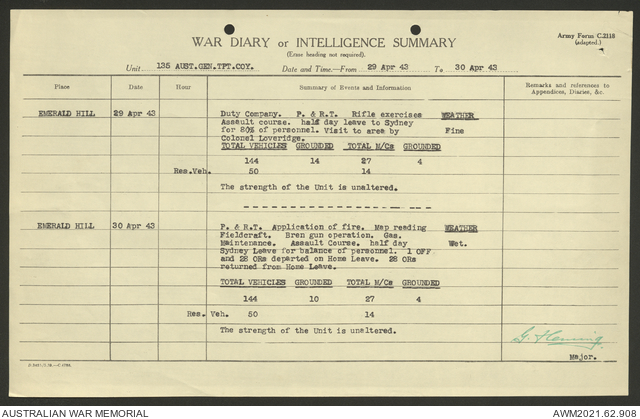 WAR DIARY or INTELLIGENCE SUMMARY
(Erase heading not required).
Army Form C.2118
(adapted.)
Unit 135 AUST.GEN.TPT.COY. Date and Time—From 29 Apr 43 To 30 Apr 43
Place Date Hour Summary of Events and Information Remarks and references to
Appendices, Diaries, &c.
EMERALD HILL 29 Apr 43 Duty Company. P. & R.T. Rifle exercises WEATHER
Assault course. half day leave to Sydney
for 80% of personnel. Visit to area by Fine
Colonel Loveridge.
TOTAL VEHICLES GROUNDED TOTAL M/Cs GROUNDED
144 14 27 4
Res.Veh. 50 14
The strength of the Unit is unaltered.
EMERALD HILL 30 Apr 43 P. & R.T. Application of fire. Map reading WEATHER
Fieldcraft. Bren gun operation. Gas.
Maintenance. Assault Course. half day Wet.
Sydney Leave for balance of personnel. 1 OFF
and 28 ORs departed on Home Leave. 28 ORs
returned from Home Leave.
TOTAL VEHICLES GROUNDED TOTAL M/Cs GROUNDED
144 10 27 4
Res. Veh. 50 14
The strength of the Unit is unaltered.
G. Fleming
Major.
AUSTRALIAN WAR MEMORIAL
AWM2021.62.908